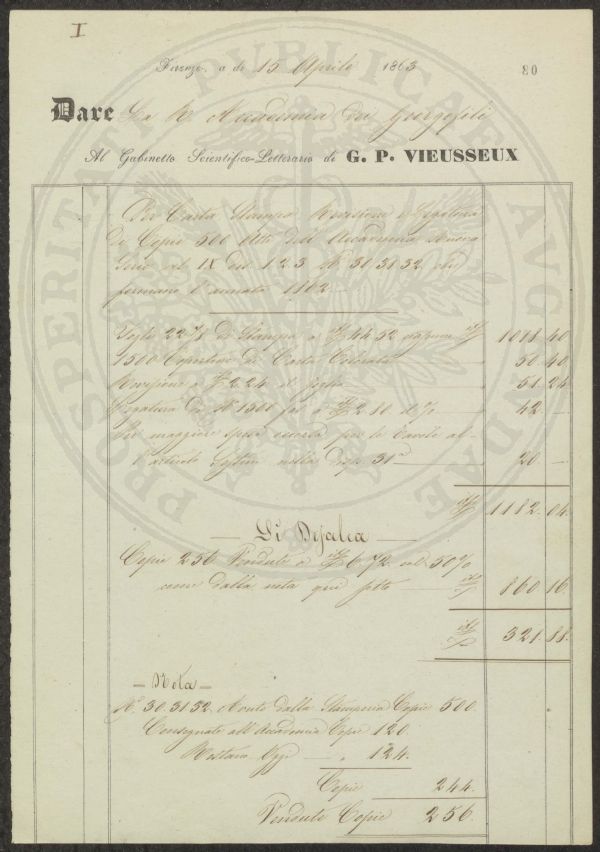 I
Firenze, a dì 15 Aprile 1863
80
Dare La R. Accademia dei Georgofili
Al Gabinetto Scientifico-Letterario di G. P. VIEUSSEUX
Per Carta Stampa Revisione e Legatura
di Copie 500 Atti dell' Accademia Nuova
Serie vol IX 1 2 3 N° 30 31 32 che
formano l' annata 1862
Fogli 22 7/8 di Stampa a 44 52 1018 40
1500 Copertine di Carta Colorata 50 40
Revisione a 2 24 il foglio 51 24
Legatura di N° 1500 a 2 80 il % 42 —
Per maggiore spesa occorsa per le tavole al-
l'articolo nella 31a 20 —
1182 04
— Si Difalca —
Copie 256 Vendute a 6 72 col 50%
come dalla nota qui sotto 860 16
321 88
— Nota —
N° 30. 31 32. Avute dalla Stamperia Copie 500
Consegnate all' Accademia Copie 120
Restano Oggi — " 124.
Copie 244
Vendute Copie 256
PROSPERITATI PUBLICAE AUGENDAE